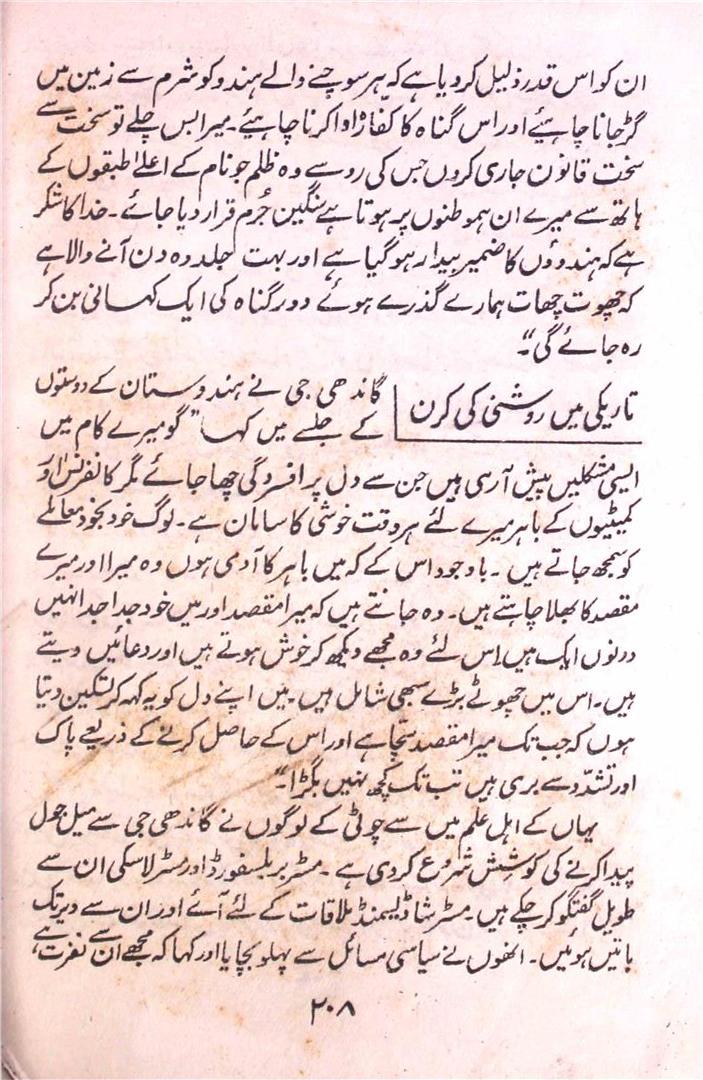 ان کو اس قدر ذلیل کر دیا ہے کہ ہر سوچنے والے ہندو کو شرم سے زمین میں
گڑ جانا چاہیئے اور اس گناہ کا کفارّہ ادا کرنا چاہیئے۔ میرا بس چلے تو سخت سے
سخت قانون جاری کروں جس کی رو سے وہ ظلم جو نام کے اعلےٰ طبقوں کے
ہاتھ سے میرے ان ہموطنوں پر ہوتا ہے سنگین جُرم قرار دیا جائے۔ خدا کا شکر
ہے کہ ہندوؤں کا ضمیر بیدار ہو گیا ہے اور بہت جلد وہ دن آنے والا ہے
کہ چھوت چھات ہمارے گذرے ہوئے دور گناہ کی ایک کہانی بن کر
رہ جائے گی“۔
تاریکی میں روشنی کی کرن
گاندھی جی نے ہندوستان کے دوستوں
کے جلسے میں کہا ”گو میرے کام میں
ایسی مشکلیں پیش آ رہی ہیں جن سے دل پر افسردگی چھا جائے مگر کانفرنس اور
کمیٹیوں کے باہر میرے لئے ہر وقت خوشی کا سامان ہے۔ لوگ خود بخود معاملے
کو سمجھ جاتے ہیں۔ باوجود اس کے کہ میں باہر کا آدمی ہوں وہ میرا اور میرے
مقصد کا بھلا چاہتے ہیں۔ وہ جانتے ہیں کہ میرا مقصد اور میں خود جدا جدا نہیں
دونوں ایک ہیں اِس لئے وہ مجھے دیکھ کر خوش ہوتے ہیں اور دعائیں دیتے
ہیں۔ اس میں چھوٹے بڑے سبھی شامل ہیں۔ میں اپنے دل کو یہ کہہ کر تسکین دیتا
ہوں کہ جب تک میرا مقصد سچّا ہے اور اس کے حاصل کرنے کے ذریعے پاک
اور تشدّد سے بری ہیں تب تک کچھ نہیں بگڑا“۔
یہاں کے اہل علم میں سے چوٹی کے لوگوں نے گاندھی جی سے میل جول
پیدا کرنے کی کوشِش شروع کر دی ہے۔ مسٹر بریلسفورڈ اور مسٹر لاسکی ان سے
طویل گفتگو کر چکے ہیں۔ مسٹر شا ڈیسمنڈ ملاقات کے لئے آئے اور ان سے دیر تک
باتیں ہوئیں۔ انھوں نے سیاسی مسائل سے پہلو بچایا اور کہا کہ مجھے ان سے نفرت ہے،
۲۰۸